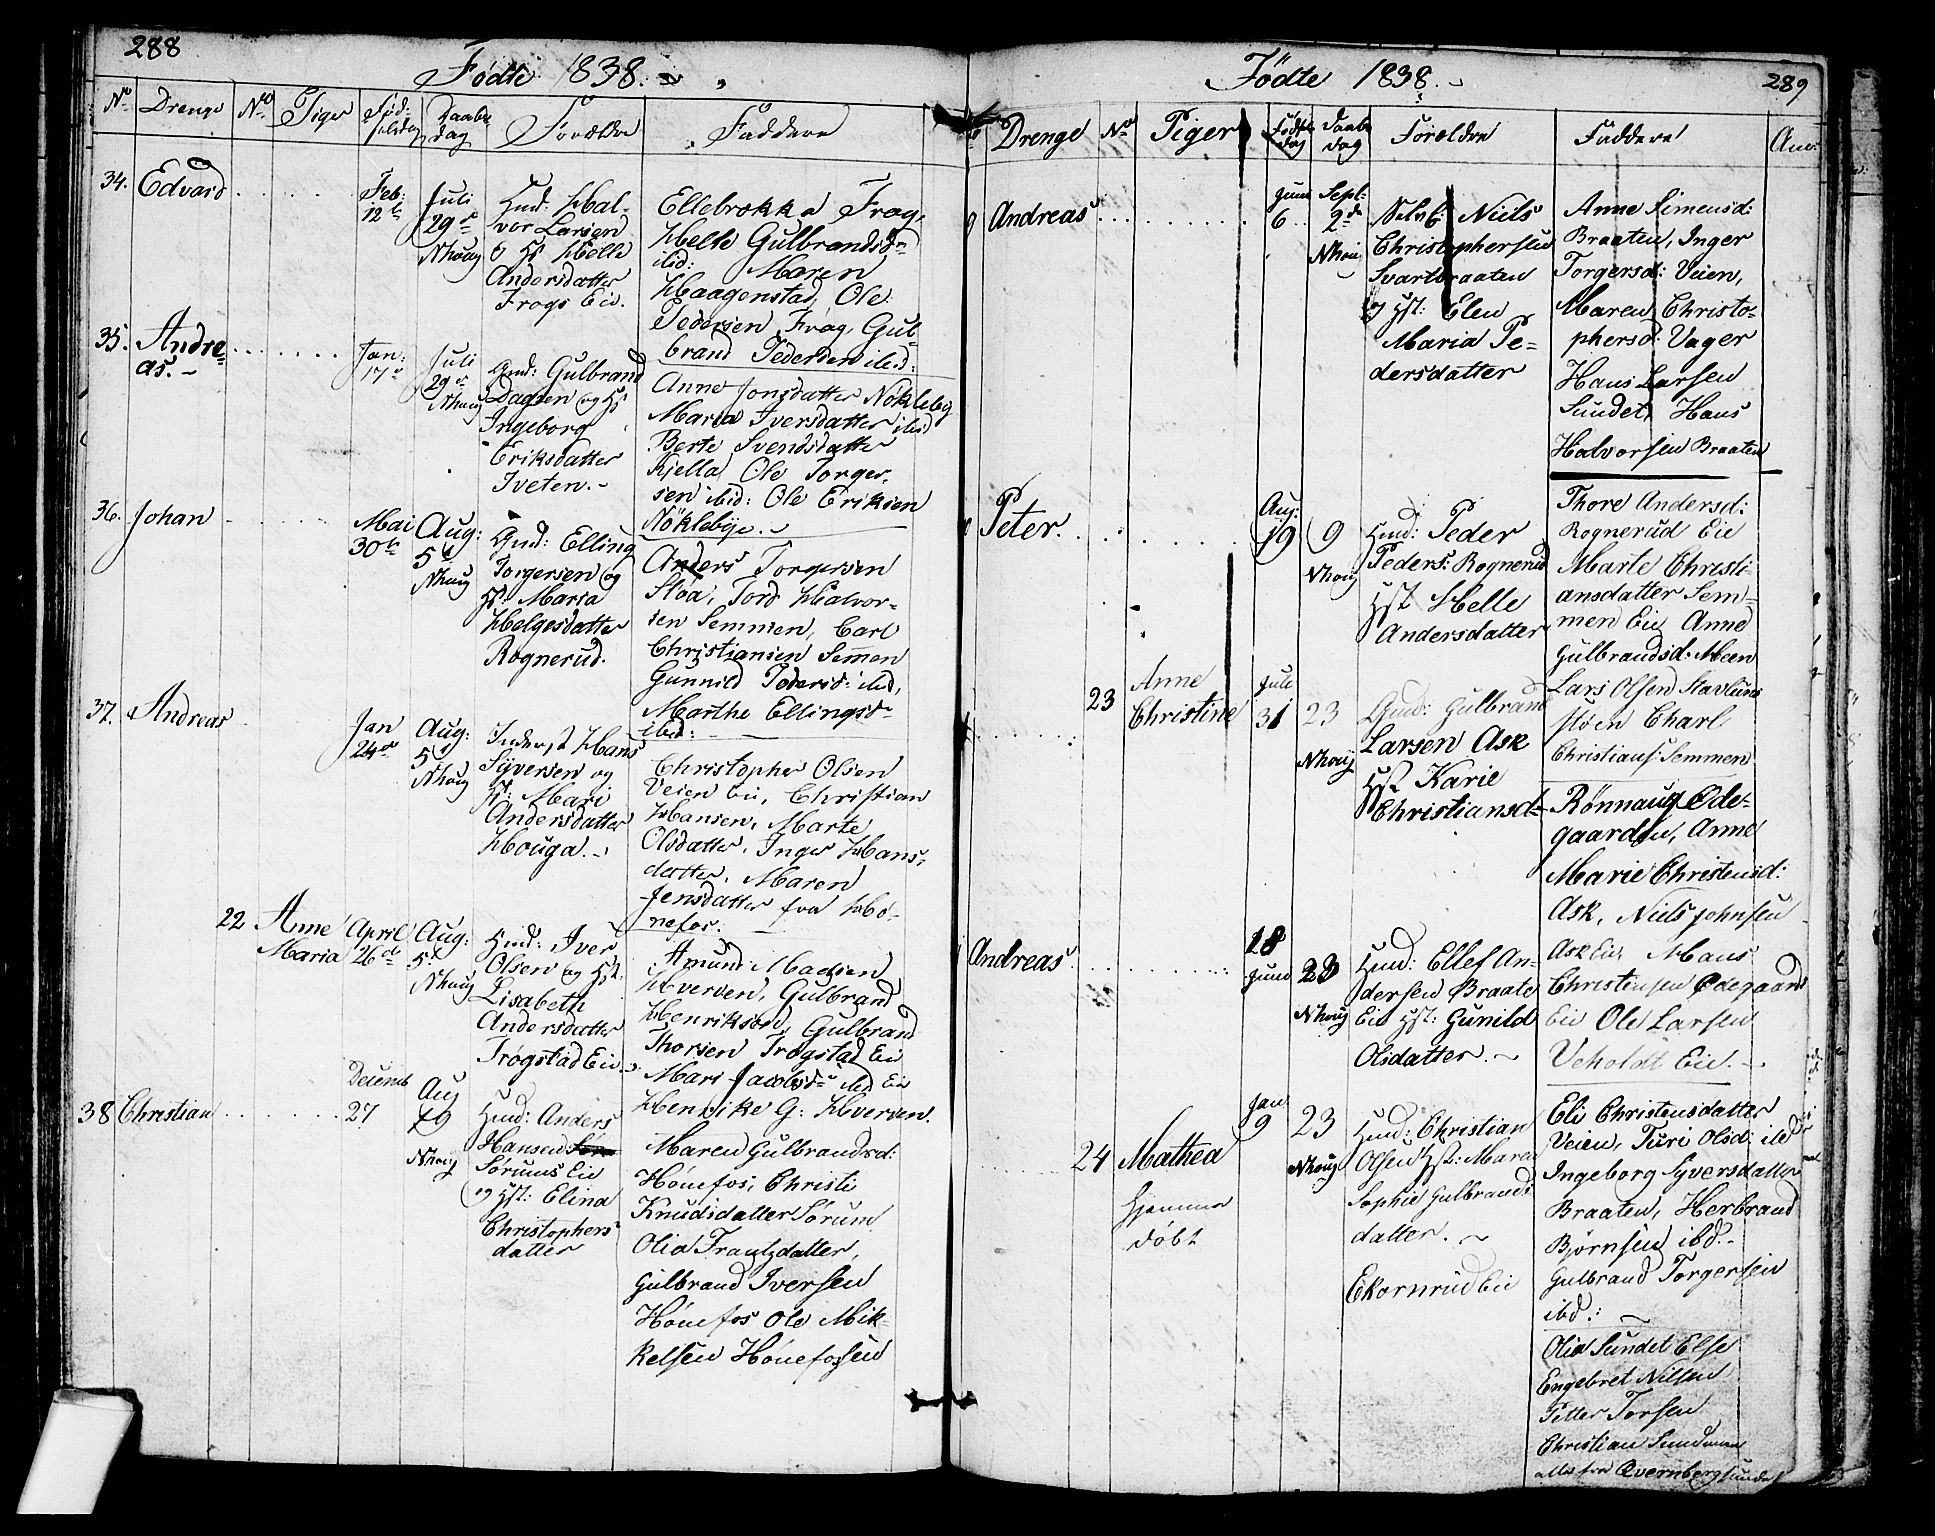 288
Födte 1838.
No Drenge No. Piger Födselsdag Daabsdag Forældre Faddere
34. Edvard
Feb: 12te
Juli 29de Nhoug
Gmd: Hal-
vor Larsen
og Hst Helle
Andersdatter
Frogs Eie.
Frog,
Helle Gulbrandsdr
ibid: Maren
Haagenstad, Ole
Pedersen Frog, Gul-
brand Pedersen ibid:
35. Andre-
as.
Jan: 17de
Juli 29de Nhoug
Gmd: Gulbrand
Dagsen og Hst
Ingeborg
Eriksdatter
Tveten.
Anne Jonsdatter Nökleby
Maria Iversdatter ibid
Berte Svendsdatter
Kjella, Ole Torger-
sen ibid: Ole Eriksen
Nöklebye.
36. Johan
Mai 30te
Aug: 5te Nhoug
Gmd: Elling
Torgersen og
Hst: Maria
Helgesdatter
Rognerud.
Anders Torgersen
Sloa, Tord Halvor-
sen Semmen, Carl
Christiansen Semen
Gunnild Pedersd: ibid,
Marthe Ellingsdr
ibid:
37. Andreas
Jan 24de
Aug: 5te Nhoug
Inderst Hans
Syversen og
Hst: Mari
Andersdatter
Houga.
Christopher Olsen
Veien Eie, Christian
Hansen, Marte
Olsdatter, Inger Hans-
datter, Maren
Jensdatter fra Hö-
nefos.
22 Anne
Maria
April 26de
Aug: 5te Nhoug
Hmd: Iver
Olsen og Hst:
Lisabeth
Andersdatter
Trögstad Eie.
Amund Madsen
Hverven, Gulbrand
Henriksen, Gulbrand
Thorsen Trögstad Eie
Mari Jacobsdr ibid Eie
Henrike G: Hverven.
38 Christian
Decemb 27
Aug 19 Nhoug
Hmd: Anders
Hansen
Sörums Eie
og Hst: Elina
Christophers
datter
Maren Gulbrandsd:
Hönefos, Christi
Knudsdatter Sörum
Olia Frantzdatter,
Gulbrand Iversen
Hönefos Ole Mik-
kelsen Hönefossen
Födte 1838.
289
Drenge No Piger Födsdag Daabsdag Foreldre Faddere Anm:
Andreas
Juni 6
Sept: 2de Nhoug
Selvb: Niels
Christophersen
Svartbraaten
og Hst: Elen
Maria Pe-
dersdatter
Anne Simensd:
Braaten, Inger
Torgersd: Veien,
Maren Christo-
phersd: Vager
Hans Larsen
Sundet, Hans
Halvorsen Braaten
Peter.
Aug: 19
9 Nhoug
Hmd: Peder
Peders: Rognerud
Hst Helle
Andersdatter
Thore Andersd:
Rognerud Eie
Marte Christi-
ansdatter Sem-
men Eie Anne
Gulbrandsd: Meen
Lars Olsen
Charl
Christians: Semmen
23 Anne
Christine
Juli 31
23 Nhoug
Gmd: Gulbrand
Larsen Ask
Hst Karie
Christiansd:
Rönnaug Öde-
gaarden, Anne
Marie Christensd:
Ask, Niels Johnsen
Ask Eie, Hans
Christensen Ödegaard
Eie Ole Larsen
Veholdt Eie.
Andreas
18 Juni
23 Nhoug
Hmd: Ellef An-
dersen Braate
Eie Hst: Gunild
Olsdatter.
24 Mathea
hjemme
döbt
Jan 9
23 Nhoug
Hmd: Christian
Olsen Hst: Maren
Sophie Gulbrands
datter.
Ekornrud Eie
Eli Christensdatter
Veien, Turi Olsd: ibd
Ingeborg Syversdatter
Braaten, Herbrand
Björnsen ibd.
Gulbrand Torgersen
ibd:
Olia Sundet Else
Engebret Nilsen
Petter Torsen
Christian
alle fra Qvernbergsundet